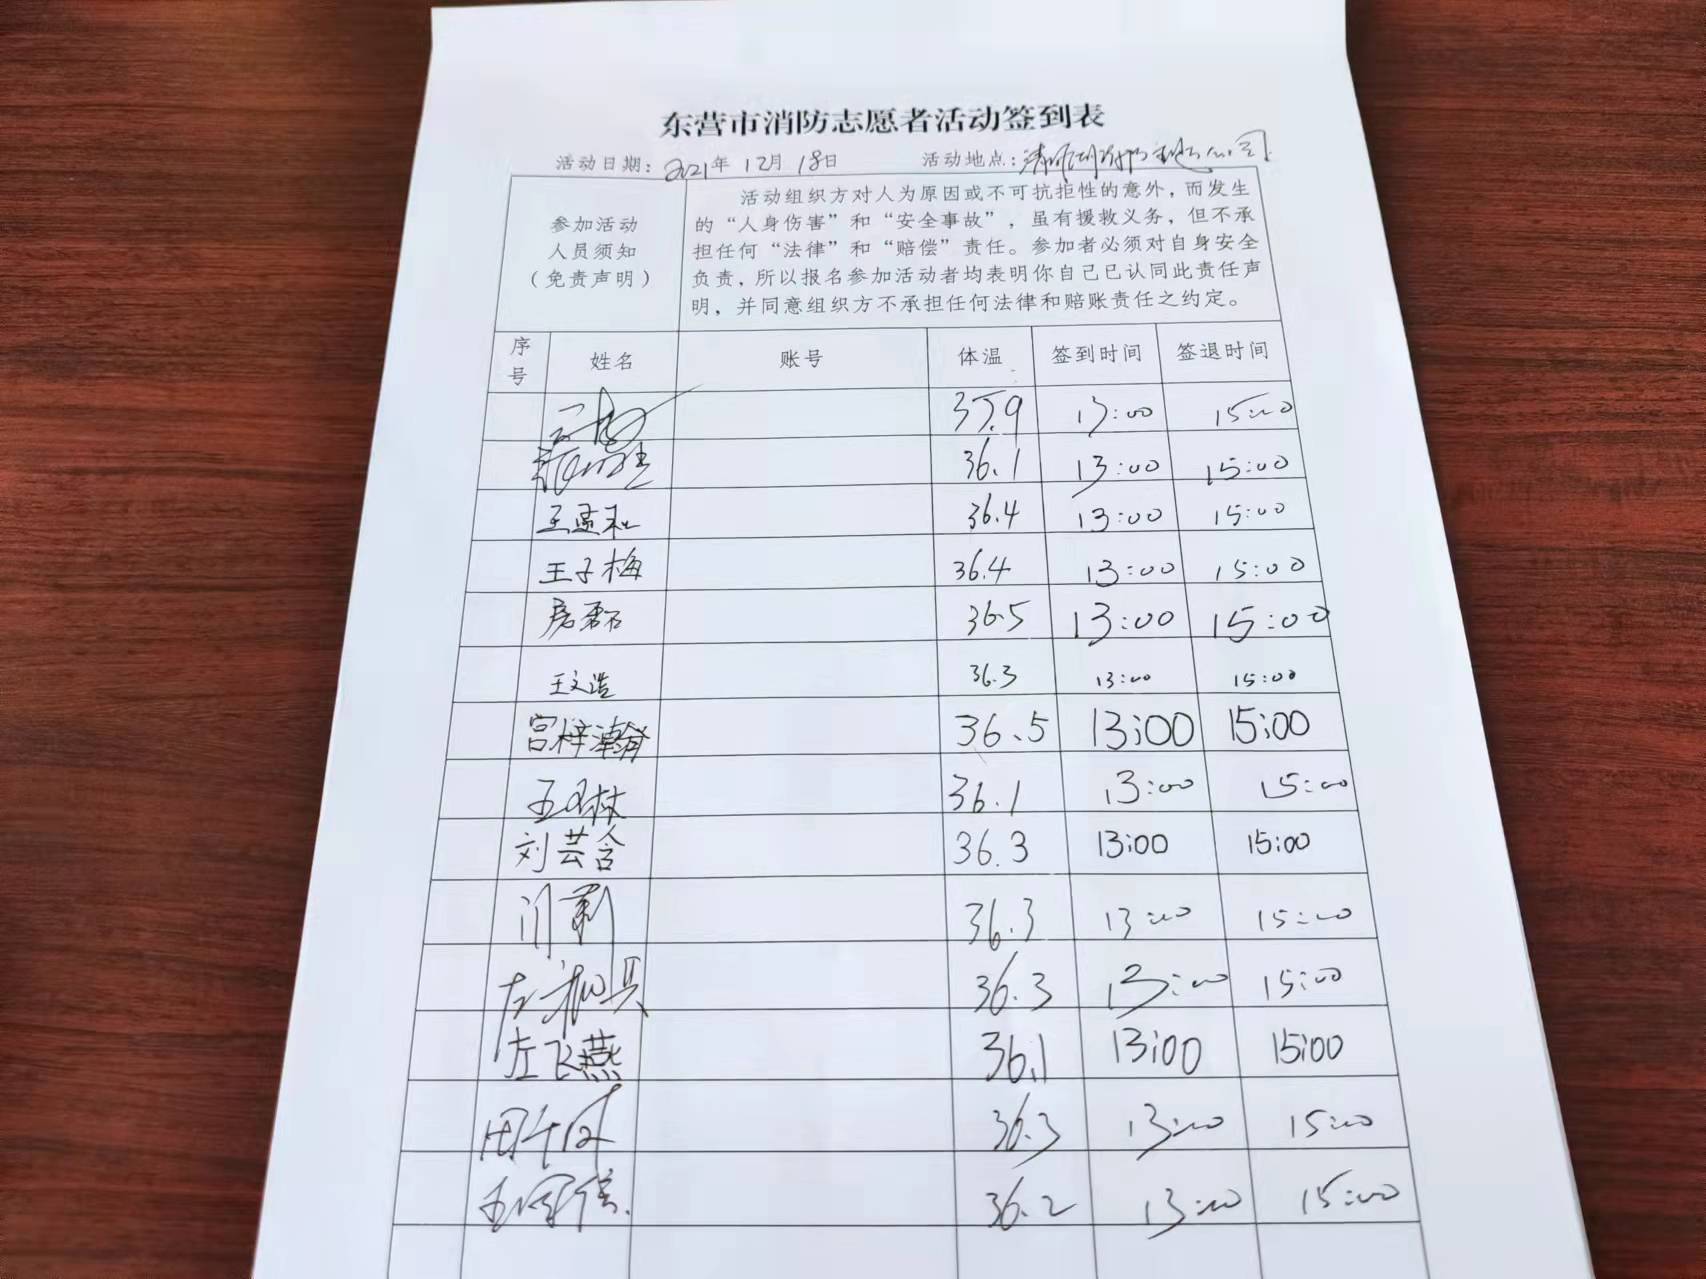 东营市消防志愿者活动签到表
活动日期：2021年 12月 18日 活动地点：
参加活动
人员须知
（免责声明）
活动组织方对人为原因或不可抗拒性的意外，而发生
的“人身伤害”和“安全事故”，虽有援救义务，但不承
担任何“法律”和“赔偿”责任。参加者必须对自身安全
负责，所以报名参加活动者均表明你自己已认同此责任声
明，并同意组织方不承担任何法律和赔账责任之约定。
序号 姓名 账号 体温 签到时间 签退时间
35.9 13:00 15:00
36.1 13:00 15:00
王孟和 36.4 13:00 15:00
王子梅 36.4 13:00 15:00
房磊 36.5 13:00 15:00
王文浩 36.3 13:00 15:00
宫梓瀚 36.5 13:00 15:00
36.1 13:00 15:00
刘芸含 36.3 13:00 15:00
36.3 13:00 15:00
36.3 13:00 15:00
左飞燕 36.1 13:00 15:00
36.3 13:00 15:00
36.2 13:00 15:00